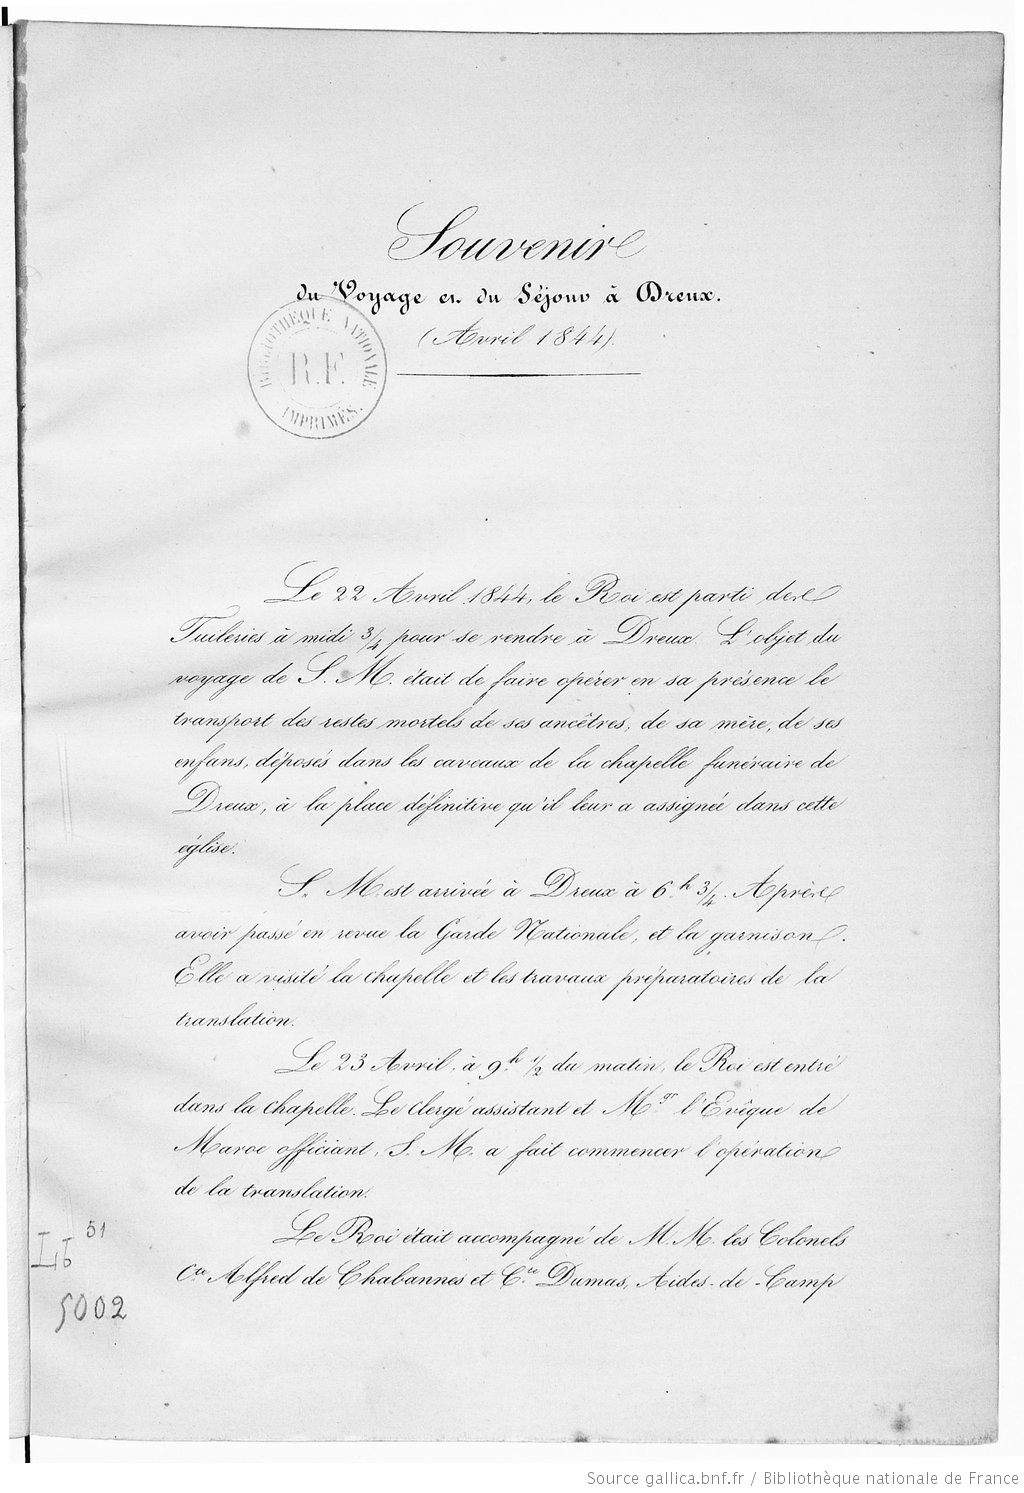 Souvenir
du Voyage et du Séjour à Dreux.
(Avril 1844)
BIBLIOTHEQUE NATIONALE
R.F.
IMPRIMÉS.
Le 22 Avril 1844, le Roi est parti des
Tuileries à midi 3/4 pour se rendre à Dreux. L'objet du
voyage de S. M. était de faire opérer en sa présence le
transport des restes mortels de ses ancêtres, de sa mère, de ses
enfans, déposés dans les caveaux de la chapelle funéraire de
Dreux, à la place définitive qu'il leur a assignée dans cette
église.
S. M. est arrivée à Dreux à 6.h 3/4. Après
avoir passé en revue la Garde Nationale, et la garnison.
Elle a visité la chapelle et les travaux préparatoires de la
translation.
Le 23 Avril, à 9.h 1/2 du matin, le Roi est entré
dans la chapelle. Le clergé assistant et M.gr l'Evêque de
Maroc officiant, S. M. a fait commencer l'opération
de la translation.
Le Roi était accompagné de M.M. les Colonels
C.te Alfred de Chabannes et C.te Dumas, Aides-de-Camp
Lb 51
5002
Source gallica.bnf.fr / Bibliothèque nationale de France